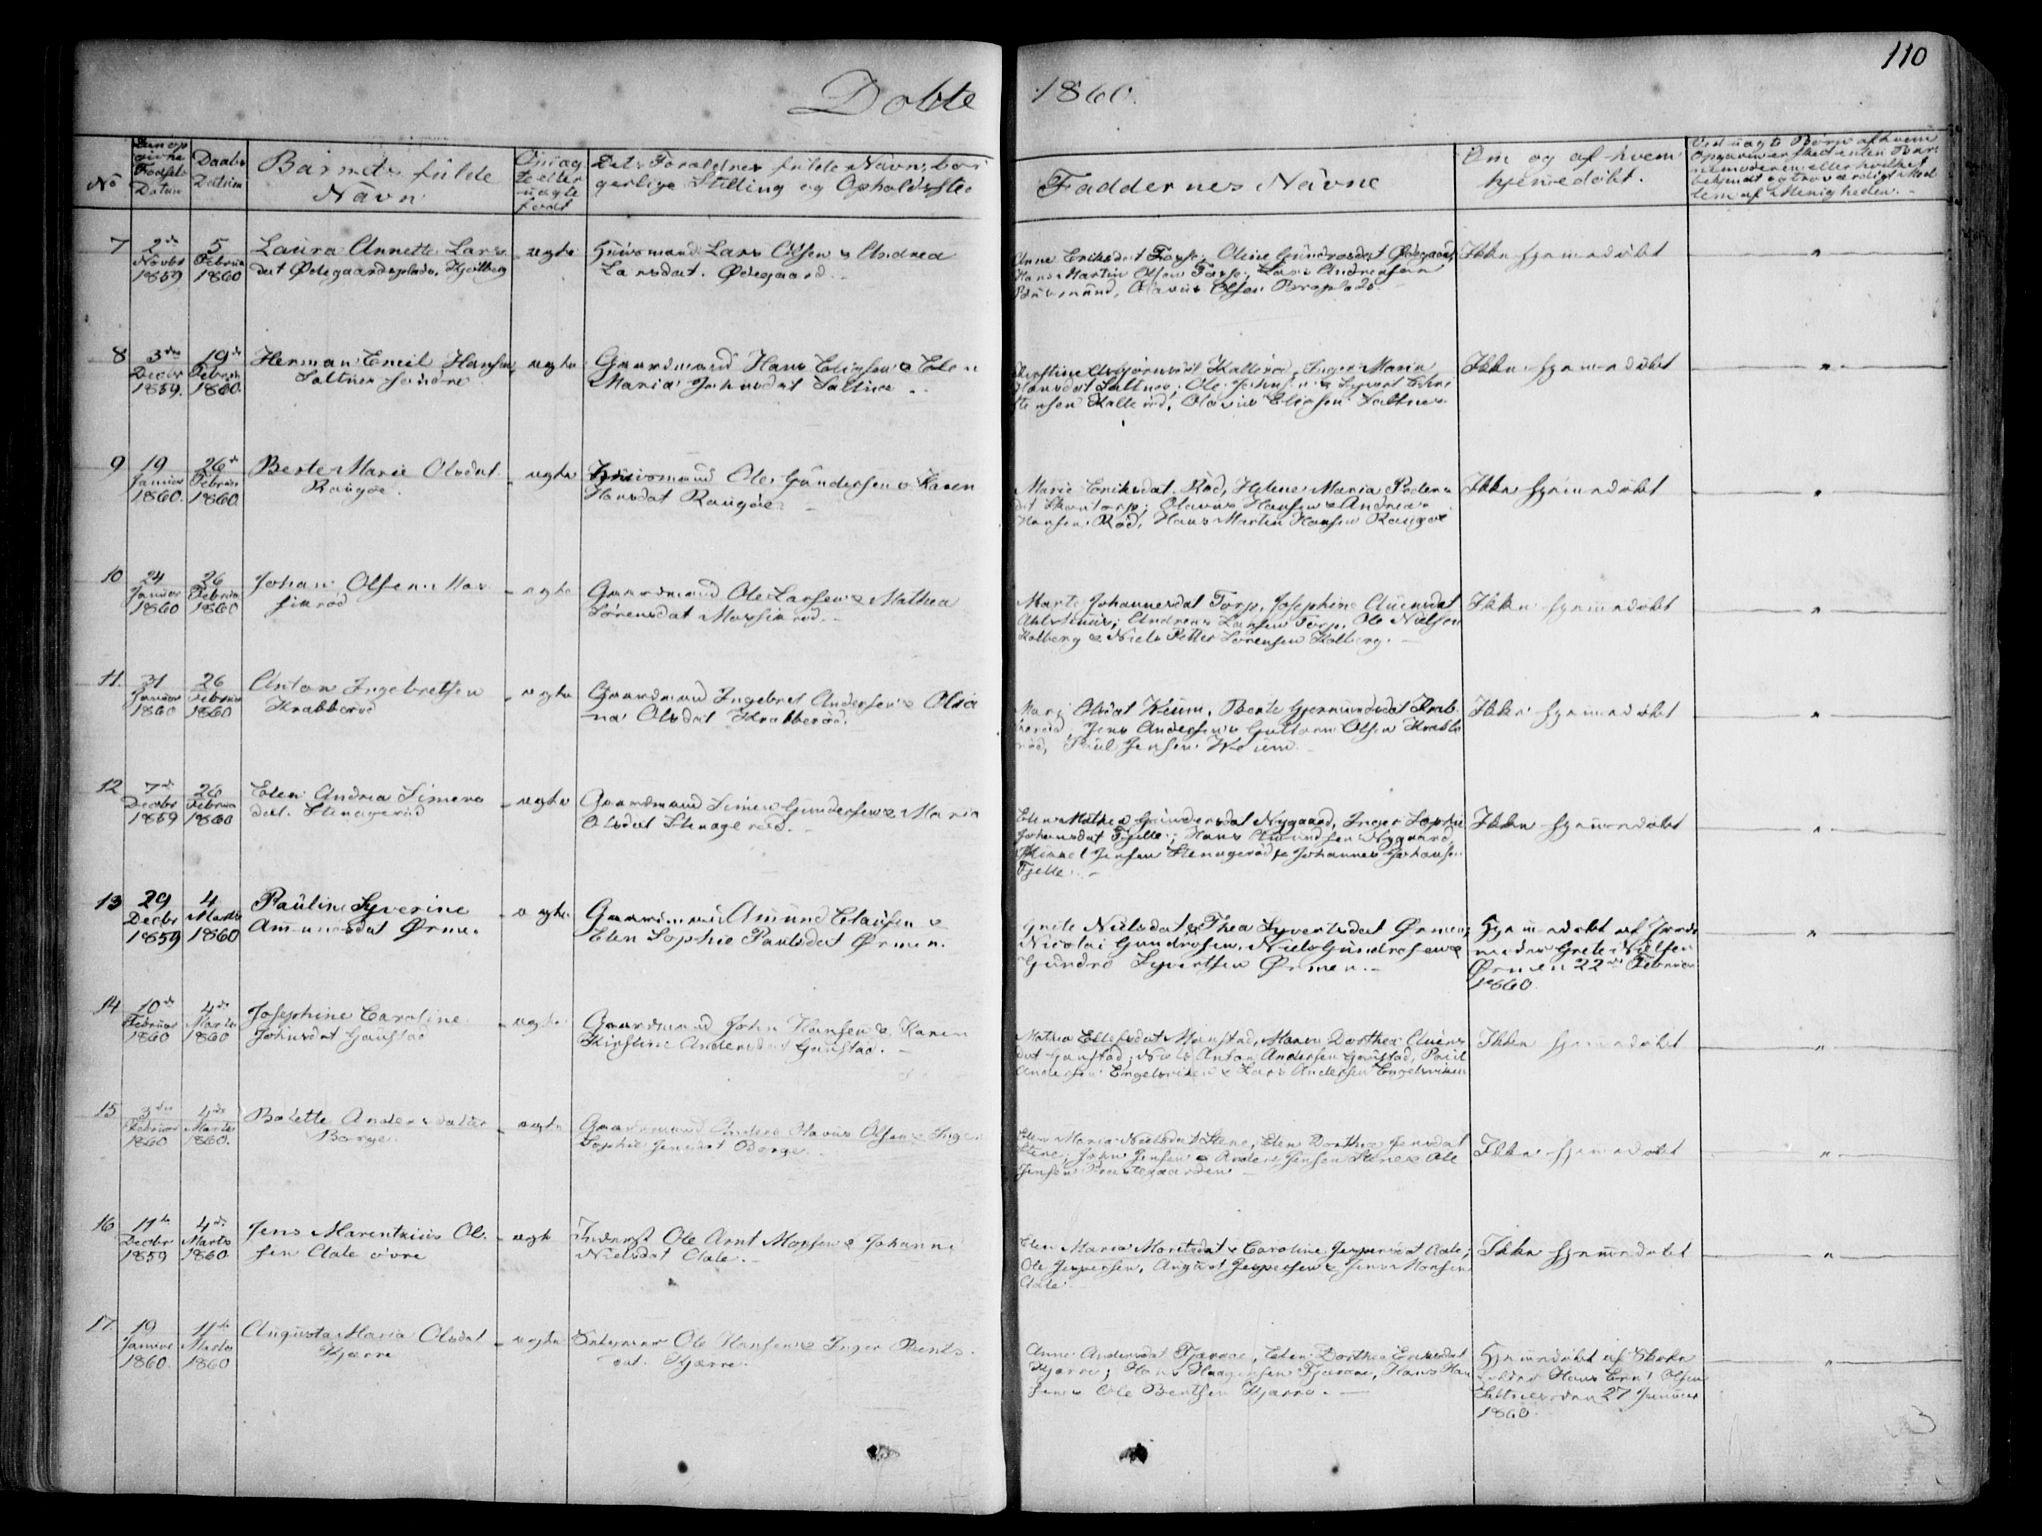 110
Døbte 1860.
No
Daabs
Datum
Barnets fulde
Navn
Det Foreldres fulde Navn, bor
gerlige Stilling og Opholdssted
Faddernes Navne
Om og af hvem
hjemedøbt.
7 2de Novbr 1859 5 Februar 1860
Laura Annette Lars
dat Ødegaardsplads, Kjølberg
ægte
Huusmand Lars Olsen & Andrea
Larsdat. Ødegaard.
Anne Eriksdat Torp; Oline Gundrosdat Ødegaard,
Hans Martin Olsen Torp; Lars Andreasen
Olavus Olsen
Ikke hjemmedøbt
8 3die Decbr 1859. 19de Februar 1860.
Herman Emil Hansen
Saltnes søndre
ægte
Gaardmand Hans Eliasen & Elen
Maria Johnsdat Saltnes
Hansdat Saltnes; Ole Johnsen & Syvert Chri
stensen Kallerød, Olavus Eliasen Saltnes
Ikke hjemmedøbt
9 19 Januar 1860. 26de Februar 1860.
Berte Marie Olsdat.
Raugøe.
ægte
Huusmand Ole Gundersen & Karen
Hansdat Raugøe
Marie Eriksdat. Rød, Helene Maria Peders
dat Skontorp; Olavus Hansen & Andreas
Hansen Rød, Hans Martin Hansen Raugøe
Ikke hjemmedøbt
10 24 Januar 1860 26 Februar 1860
Johan Olsen Mos
sikrød
ægte
Gaardmand Ole Larsen & Mathea
Sørensdat Mossikrød.
Marte Johannesdat Torp, Josephine
Andreas Larsen Torp, Ole Nielsen
Kolberg & Niels Petter Sørensen Kolberg.
Ikke hjemmedøbt
11. 31 Januar 1860 26 Februar 1860
Anton Ingebretsen
Krabberød
ægte
Gaardmand Ingebret Andersen & Olia
na Olsdat Krabberød.
Mari Olsdat Weum, Berte Gjermundsdat Krab
berød, Jens Andersen & Guttorm Olsen Krabbe
rød, Paul Jensen Weum.
Ikke hjemmedøbt
12 7de Decbr 1859 26 Februar 1860
Elen Andrea Simens
dat. Stenagerød
ægte
Gaardmand Simen Gundersen & Maria
Olsdat Stenagerød.
Elen Mathea Gundersdat Nygaard, Inger Sophie
Johansdat Fjelle; Hans Amundsen Nygaard,
Mikkel Jensen Stenagerød & Johannes Johansen
Fjelle.
Ikke hjemmedøbt
13 29 Decbr 1859 4 Marts 1860
Pauline Syverine
Amundsdat Ørmen.
ægte.
Gaardmand Amund Clausen &
Elen Sophie Paulsdat Ørmen.
Grete Nielsdat & Thea Syvertsdat Ørmen;
Nicolai Gundrosen, Niels Gundrosen &
Gundro Syvertsen Ørmen.
Hjemmedøbt af Jorde
moder Grete Nielsen
Ørmen 22de Februar
1860.
14 10de Februar 1860 4de Marts 1860
Josephine Caroline
Johnsdat Gaustad
ægte
Gaardmand John Hansen & Karen
Kirstine Andersdat Gaustad.
Mathea Ellefsdat Maren Dorthea
dat Gaustad; Niels Anton Andersen Gaustad, Paul
Andersen Engelsviken & Lars Andersen Engelsviken
Ikke hjemmedøbt
15 3die Februar 1860 4de Marts 1860.
Bolette Andersdatter
Borge.
ægte
Gaardmand Anders Olavus Olsen & Inger
Sophie Jensdat Borge.
Elen Maria Nielsdat Stene, Elen Dorthea Jensdat
Stene; John Jensen & Anders Jensen Stene & Ole
Jensen Præstegaarden
Ikke hjemmedøbt
16 11te Decbr 1859 4de Marts 1860
Jens Marentzius Ol
sen Aale øvre
ægte
Inderst Ole Arnt Monsen & Johanne
Nielsdat Aale.
Elen Maria & Caroline Jespersdat Aale;
Ole Jespersen, August Jespersen & Jens Monsen
Aale.
Ikke hjemmedøbt
17. 19 Januar 1860. 11te Marts 1860
Augusta Maria Olsdat
Kjærre
ægte
Ole Hansen & Inger Bents
dat. Kjærre.
Anne Andersdat Elen Dorthea Eriksdat
Kjærre; Hans Hans Han
sen & Ole Bentsen Kjærre.
Hjemmedøbt af Skole
holder Hans Olsen
Saltnes den 27 Januar
1860.